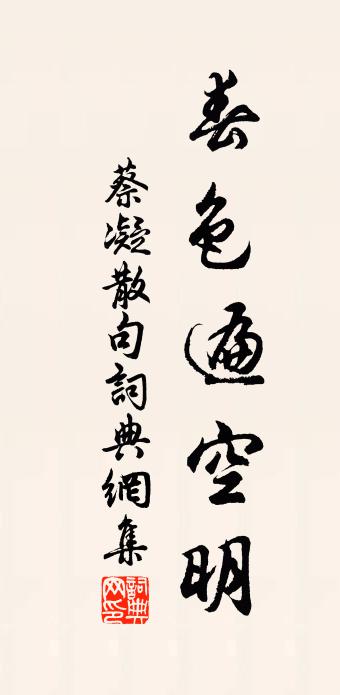 春色遍空明
蔡凝散句詞典網集
詞典网印